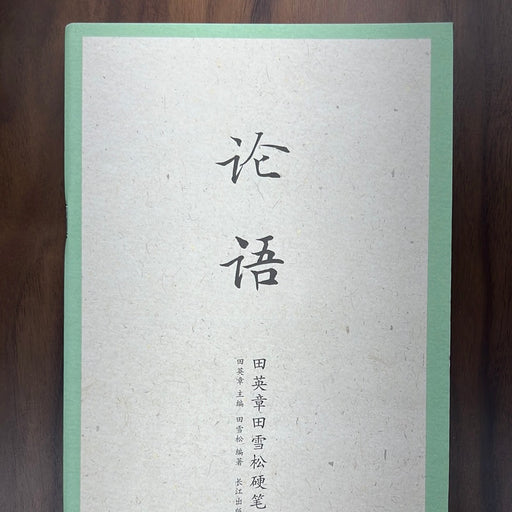 论语
田英章田雪松硬笔
田英章 主编 田雪松 编著 长江出版